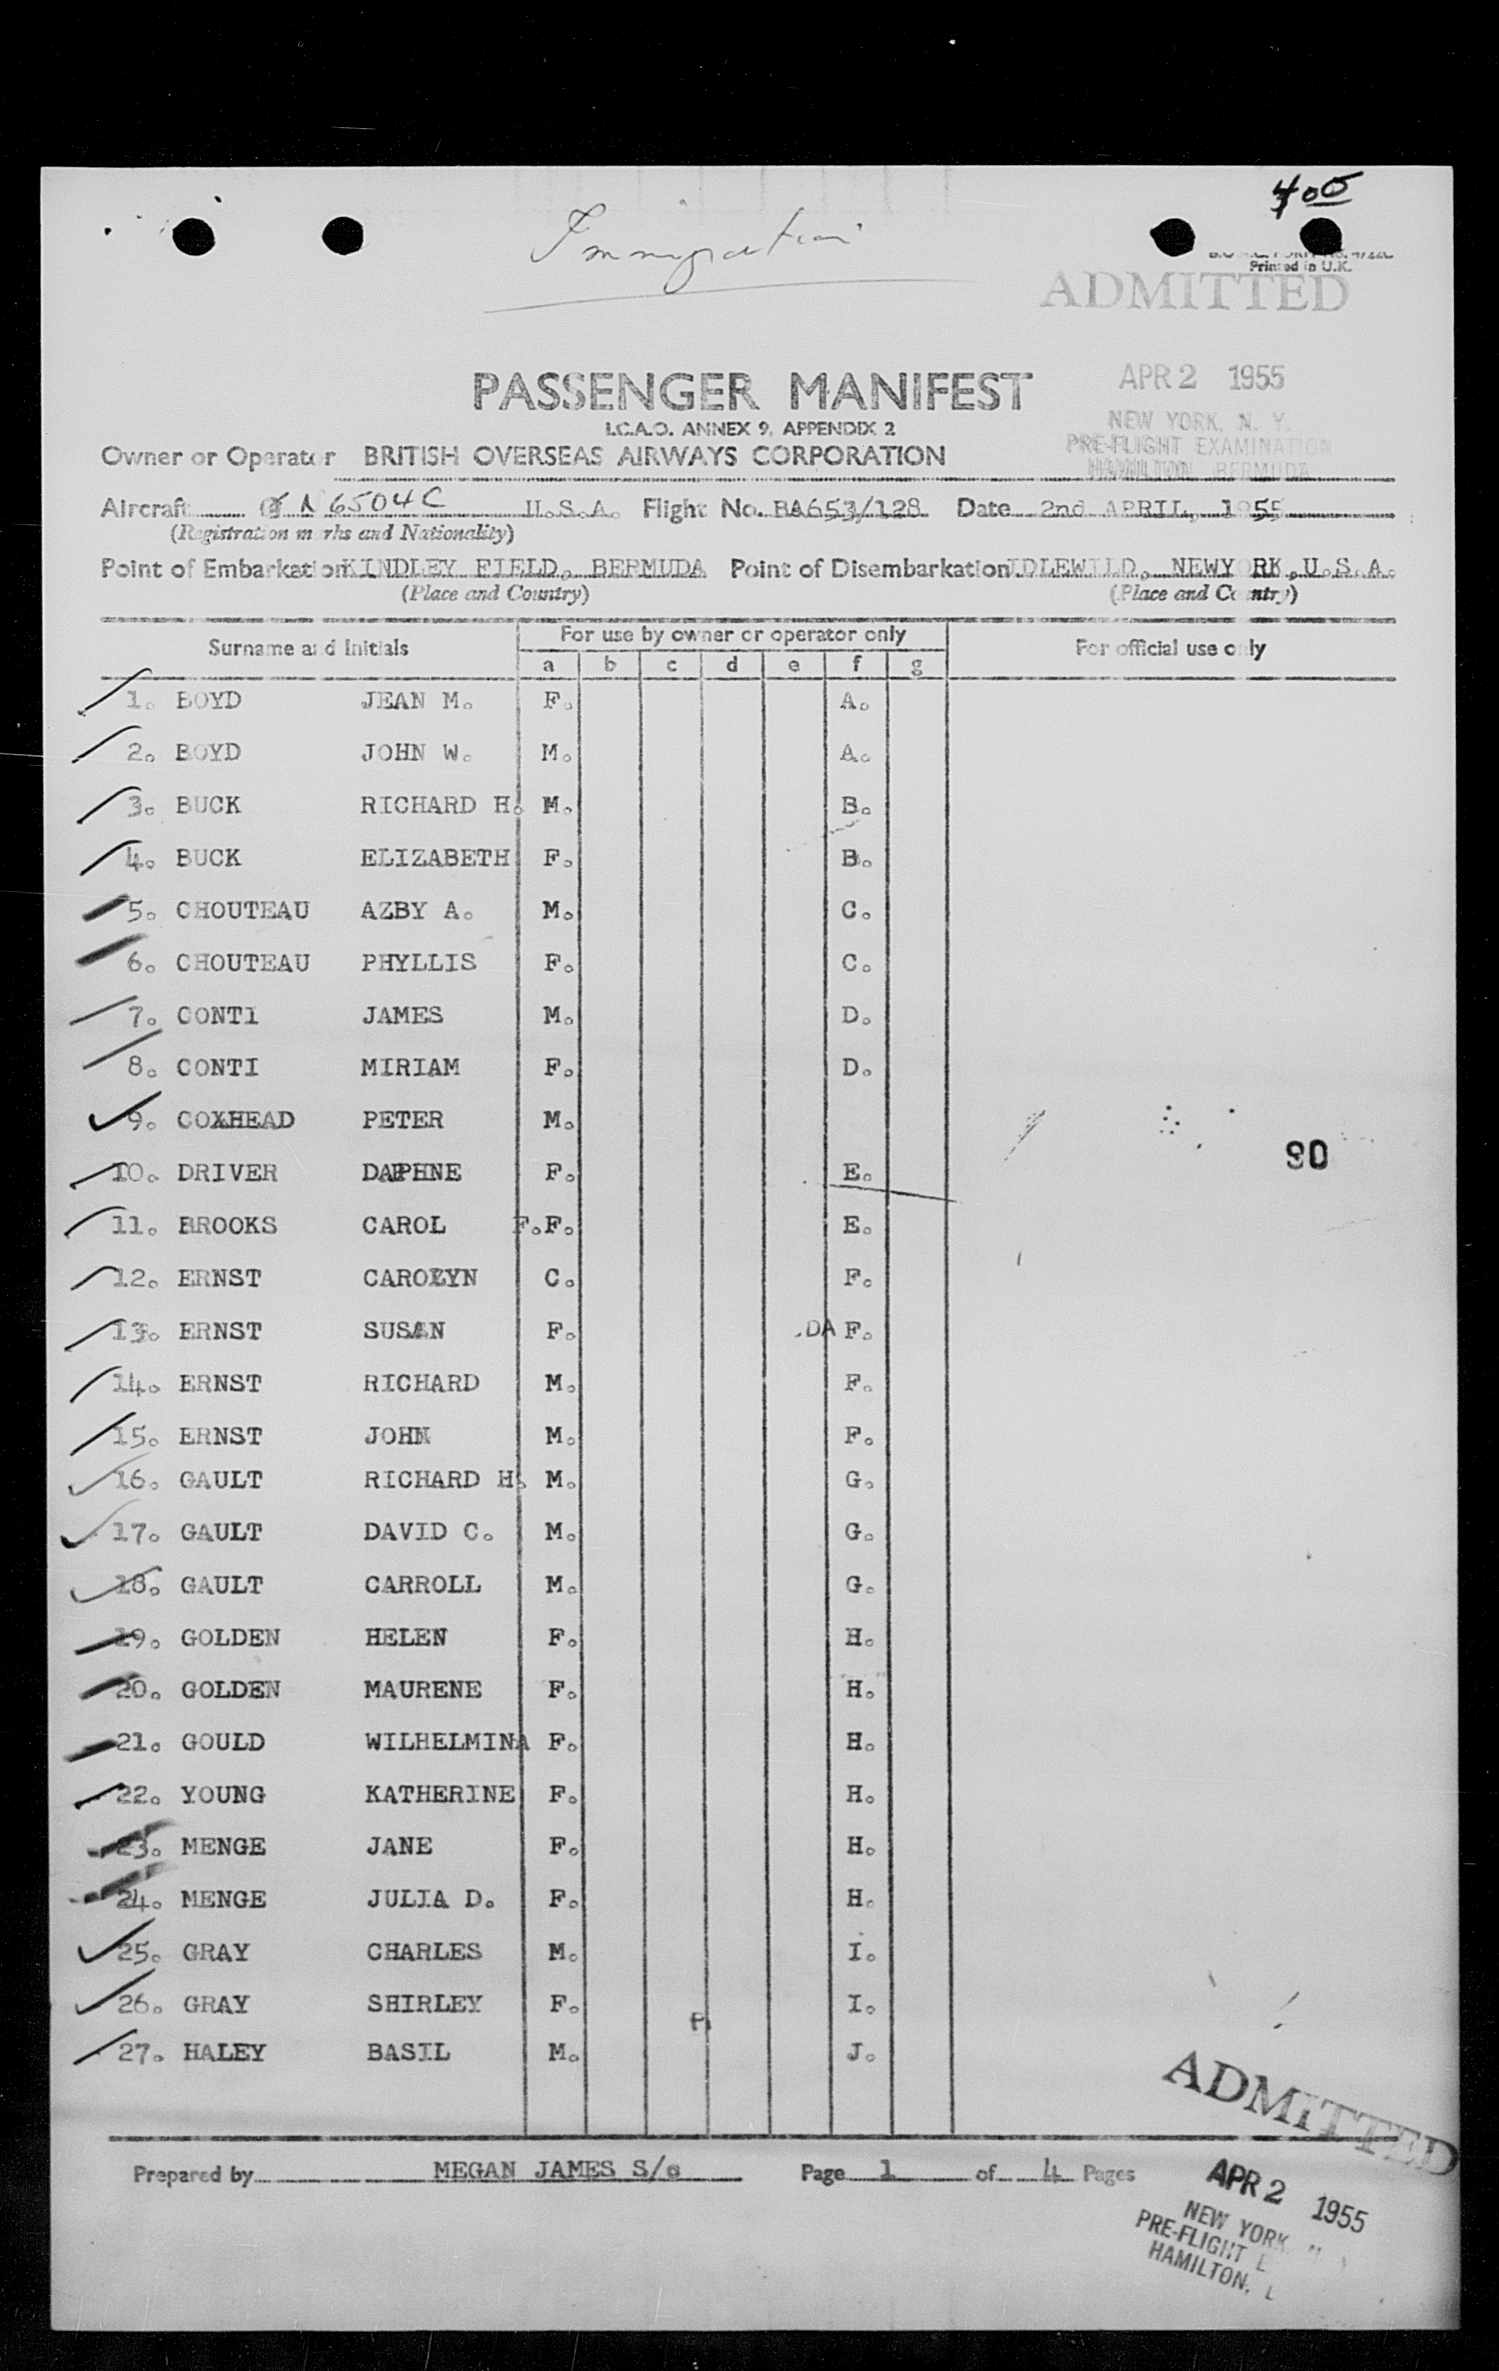 400
Immigration
Printed in U.K.
ADMITTED
APR 2 1955
NEW YORK, N. Y.
PRE-FLIGHT EXAMINATION
HAMILTON BERMUDA
PASSENGER MANIFEST
I.C.A.O. ANNEX 9, APPENDIX 2
Owner or Operator BRITISH OVERSEAS AIRWAYS CORPORATION
Aircraft N6504C U.S.A. Flight No. BA653/128 Date 2nd APRIL, 1955
(Registration marks and Nationality)
Point of Embarkation KINDLEY FIELD, BERMUDA Point of Disembarkation IDLEWILD, NEWYORK, U.S.A.
(Place and Country) (Place and Country)
Surname and Initials For use by owner or operator only For official use only
a b c d e f g
1. BOYD JEAN M. F. A.
2. BOYD JOHN W. M. A.
3. BUCK RICHARD H. M. B.
4. BUCK ELIZABETH F. B.
5. CHOUTEAU AZBY A. M. C.
6. CHOUTEAU PHYLLIS F. C.
7. CONTI JAMES M. D.
8. CONTI MIRIAM F. D.
9. COXHEAD PETER M.
90
10. DRIVER DAPHNE F. E.
11. BROOKS CAROL F.F. E.
12. ERNST CAROLYN C. F.
13. ERNST SUSAN F. .DA F.
14. ERNST RICHARD M. F.
15. ERNST JOHN M. F.
16. GAULT RICHARD H. M. G.
17. GAULT DAVID C. M. G.
18. GAULT CARROLL M. G.
19. GOLDEN HELEN F. H.
20. GOLDEN MAURENE F. H.
21. GOULD WILHELMINA F. H.
22. YOUNG KATHERINE F. H.
23. MENGE JANE F. H.
24. MENGE JULIA D. F. H.
25. GRAY CHARLES M. I.
26. GRAY SHIRLEY F. I.
27. HALEY BASIL M. J.
ADMITTED
Prepared by MEGAN JAMES S/s Page 1 of 4 Pages
APR 2 1955
NEW YORK
PRE-FLIGHT
HAMILTON,